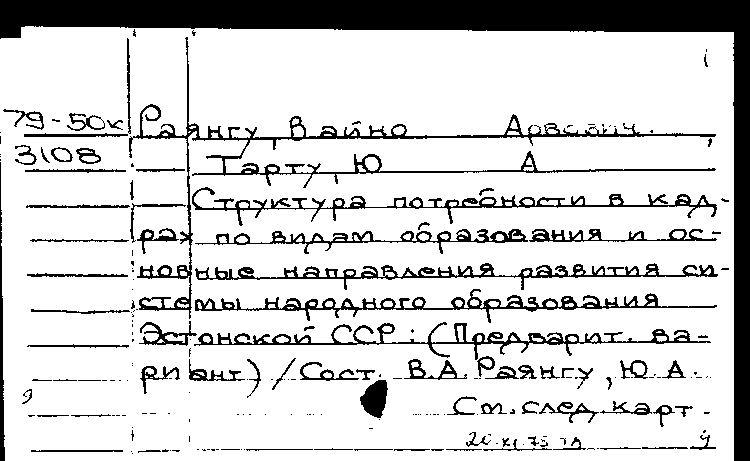 79-50к Раянгу, Вайно Арвович.
3108 Тарту, Ю А
Структура потребности в кад-
рах по видам образования и ос-
новные направления развития си-
стемы народного образования
Эстонской ССР: (Предварит. ва-
риант) / Сост. В.А. Раянгу, Ю.А.
См. след. карт.